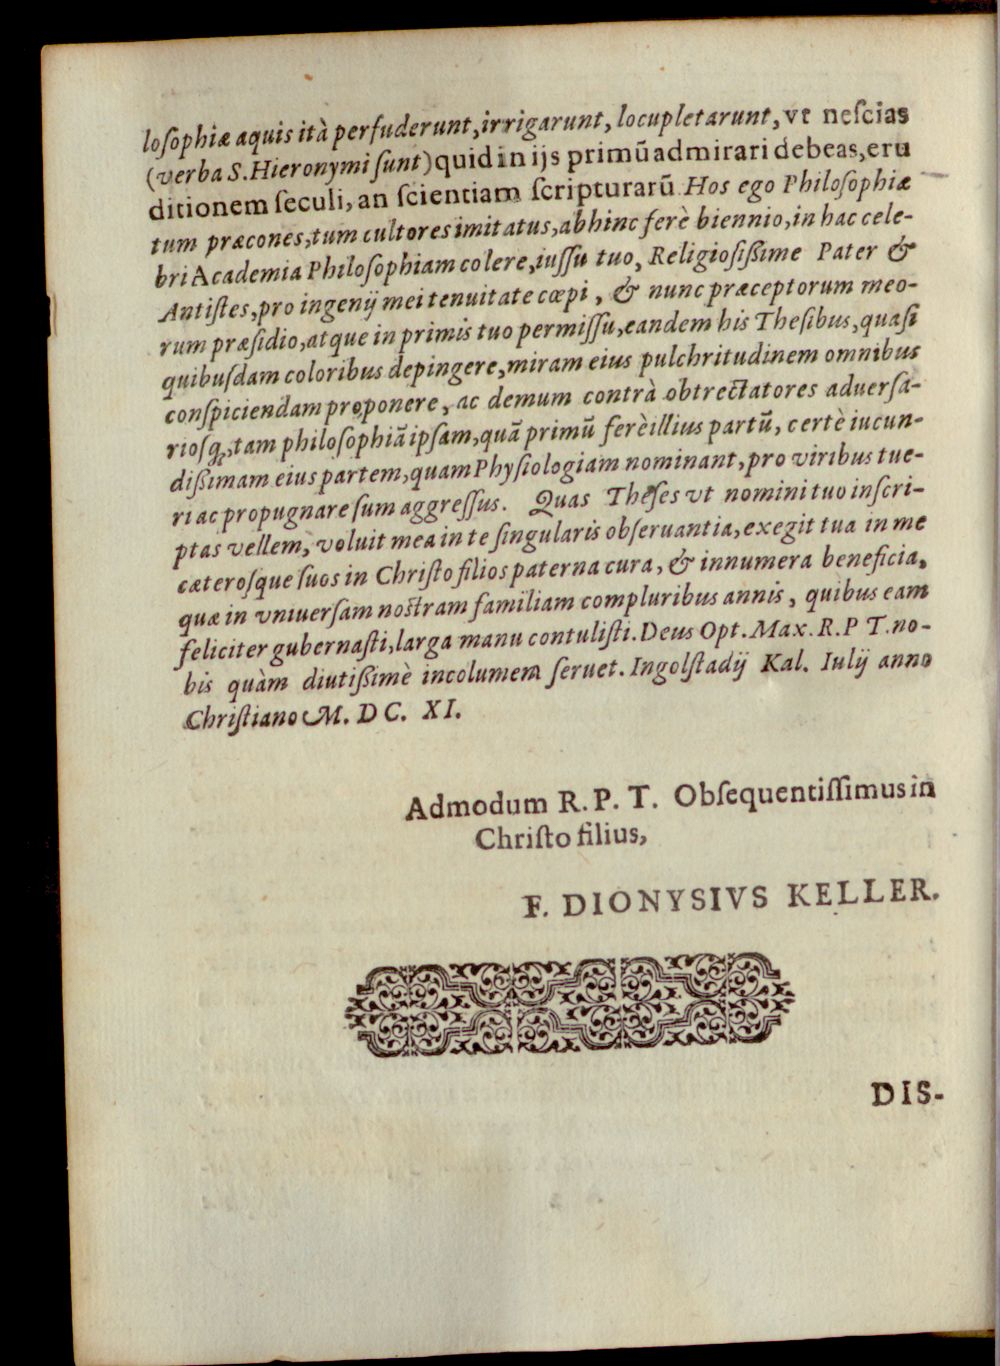 loſophiæ aquis ità perfuderunt, irrigarunt, locupletarunt, vt neſcias
(verba S. Hieronymi ſunt) quid in ijs primũ admirari debeas, eru
ditionem ſeculi, an ſcientiam ſcripturarũ. Hos ego Philoſophiæ
tum præcones, tum cultores imitatus, abhinc ferè biennio, in hac cele-
bri Academia Philoſophiam colere, iuſſu tuo, Religioſiſſime Pater &
Antiſtes, pro ingenij mei tenuitate cœpi, & nunc præceptorum meo-
rum præſidio, atque in primis tuo permiſſu, eandem his Theſibus, quaſi
quibuſdam coloribus depingere, miram eius pulchritudinem omnibus
conſpiciendam proponere, ac demum contrà obtrectatores aduerſa-
rioſq́;, tam philoſophiã ipſam, quã primũ ferè illius partũ, certè iucun-
diſſimam eius partem, quam Phyſiologiam nominant, pro viribus tue-
ri ac propugnare ſum aggreſſus. Quas Theſes vt nomini tuo inſcri-
ptas vellem, voluit mea in te ſingularis obſeruantia, exegit tua in me
cæteroſque ſuos in Chriſto filios paterna cura, & innumera beneficia,
quæ in vniuerſam noſtram familiam compluribus annis, quibus eam
feliciter gubernaſti, larga manu contuliſti. Deus Opt. Max. R. P T. no-
bis quàm diutiſſimè incolumem ſeruet. Ingolſtadij Kal. Iulij anno
Chriſtiano M. D C. XI.
Admodum R. P. T. Obſequentiſſimus in
Chriſto filius,
F. DIONYSIVS KELLER.
DIS-